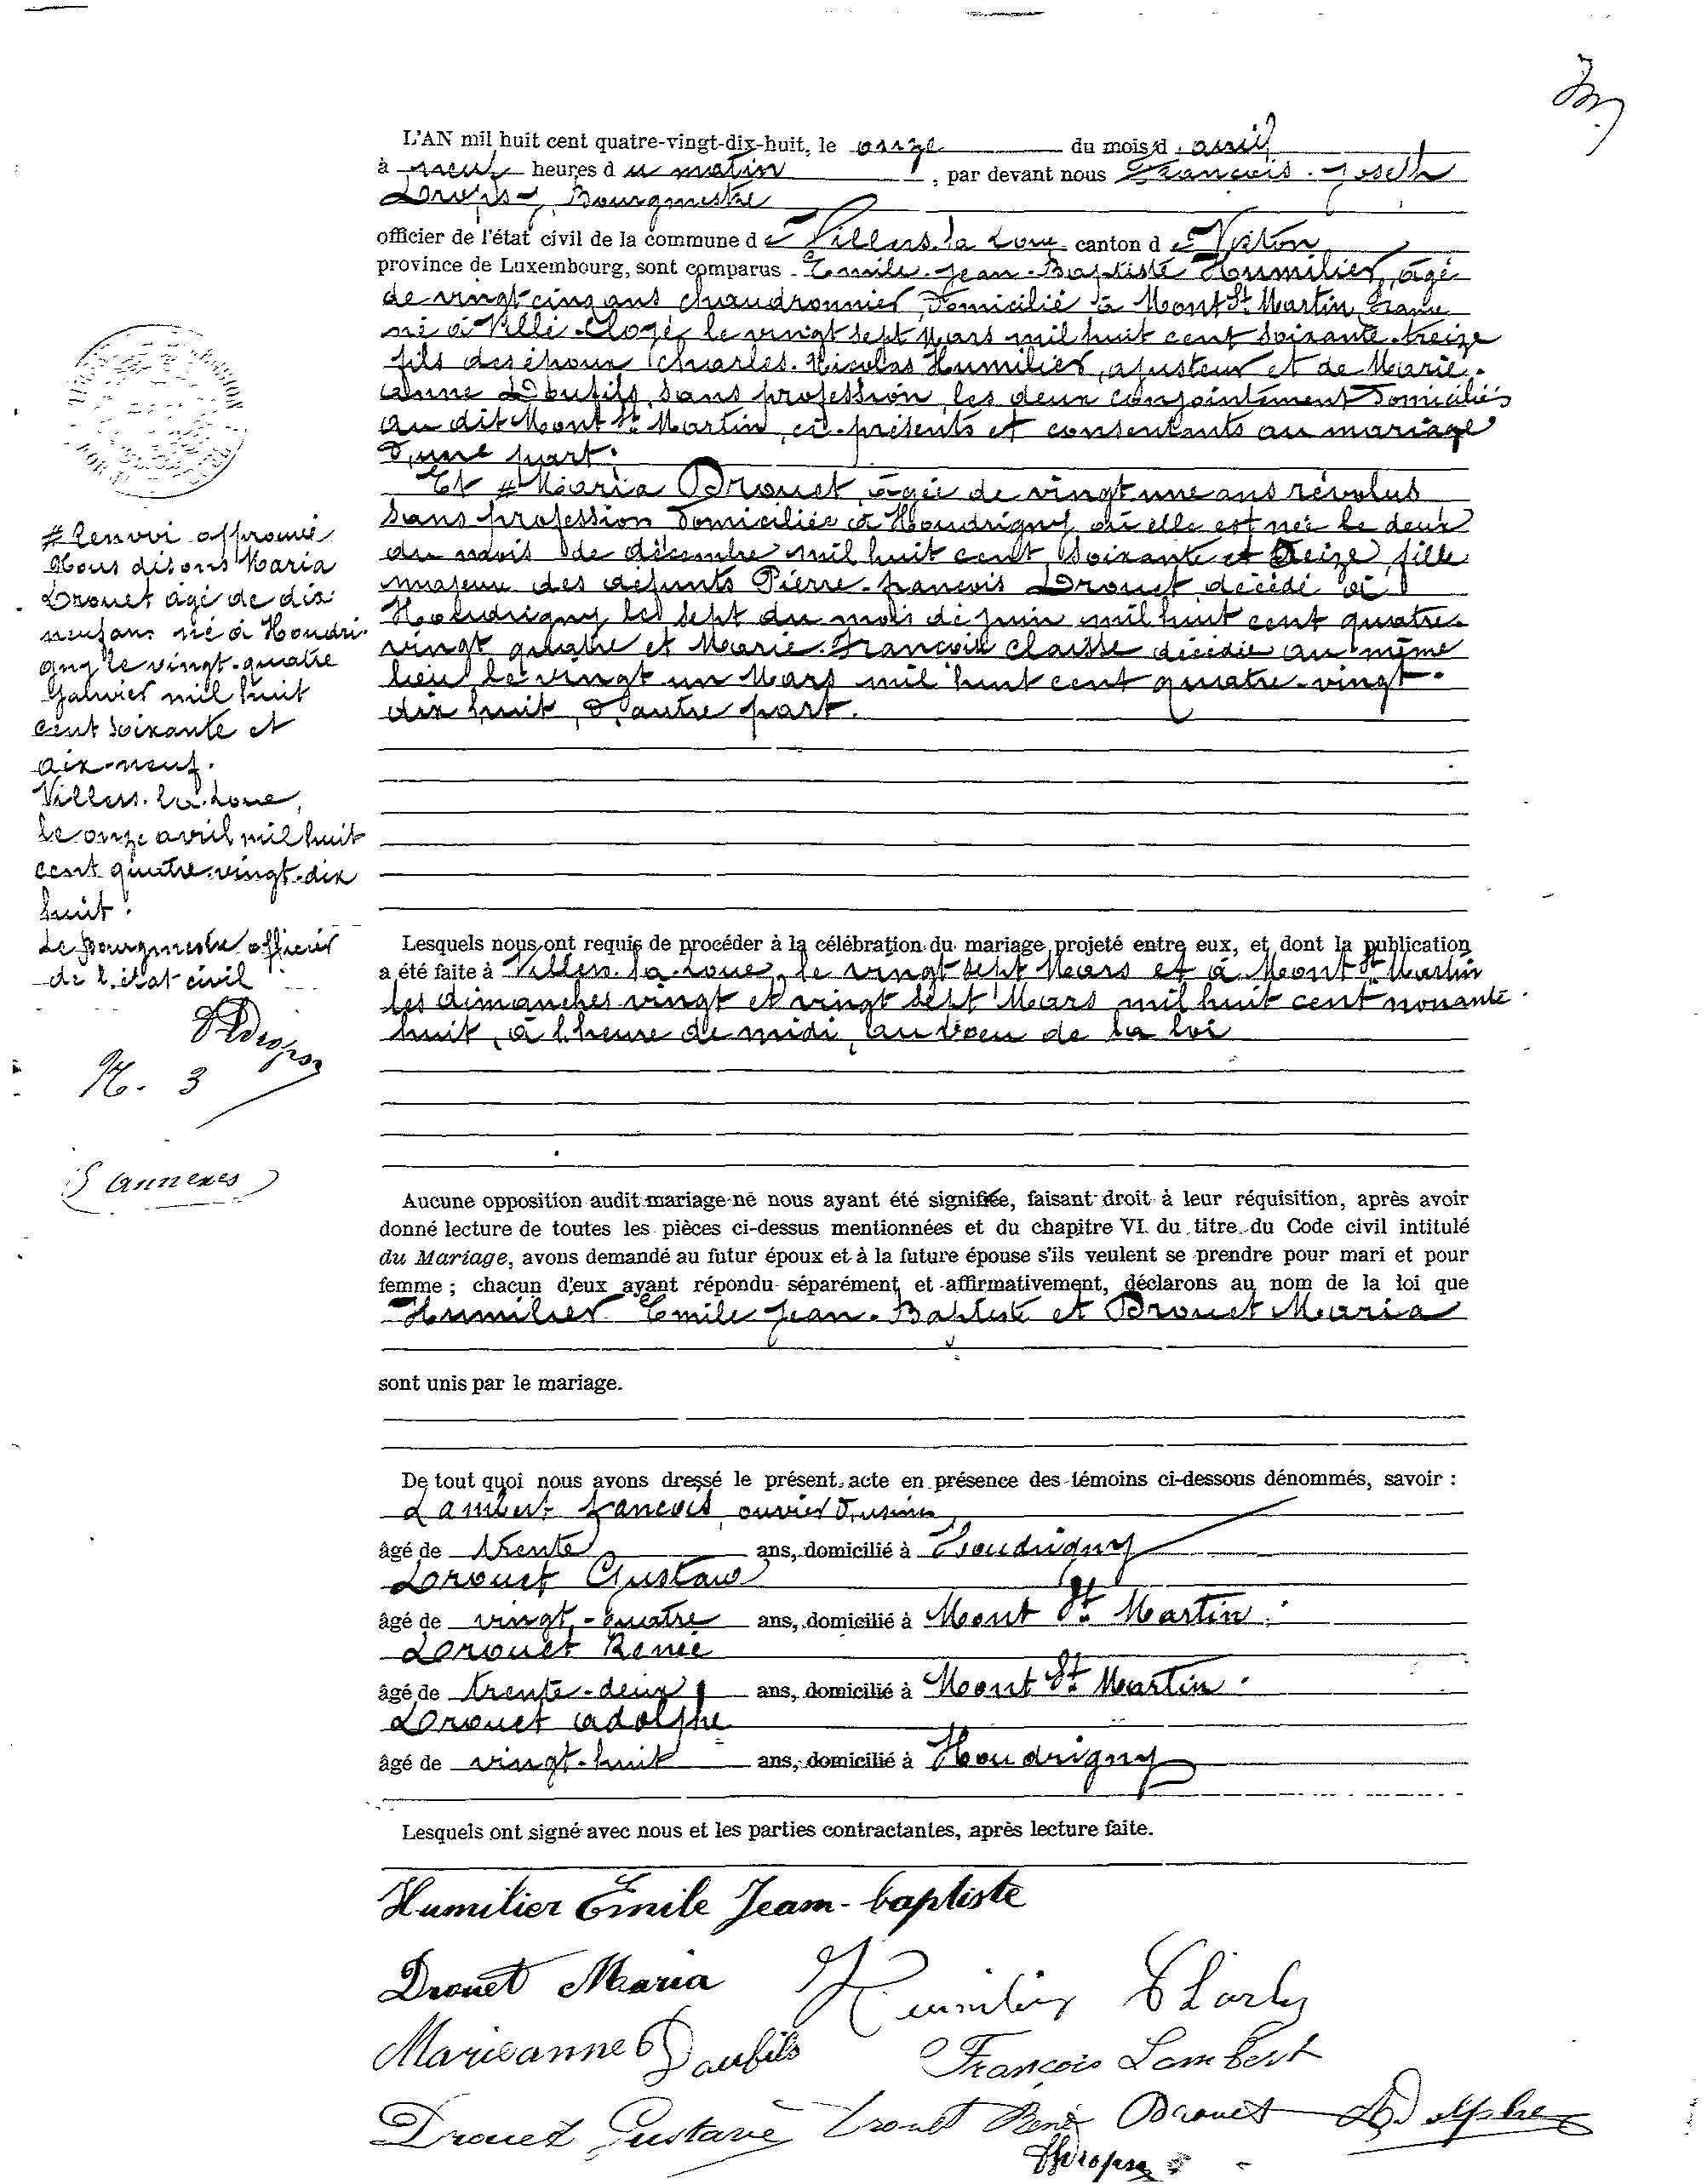 L'AN mil huit cent quatre-vingt-dix-huit, le onze du mois d avril
à neuf heures d u matin, par devant nous François-Joseph
Bourgmestre
officier de l'état civil de la commune d e Villers-la-Loue canton d e Virton
province de Luxembourg, sont comparus Emile-Jean-Baptiste Humilier, âgé
de vingt-cinq ans chaudronnier, domicilié à Mont St Martin, France
né à le vingt sept Mars mil huit cent soixante-treize
fils des époux Charles-Nicolas Humilier, ajusteur et de Marie-
anne Doufils, sans profession, les deux conjointement domiciliés
au dit Mont St Martin, ci-présents et consentants au mariage
d'une part.
Et # Maria Drouet, âgée de vingt une ans révolus
sans profession domiciliée à Houdrigny où elle est née le deux
du mois de décembre mil huit cent soixante et seize, fille
majeure des défunts Pierre-françois Drouet, décédé à
Houdrigny le sept du mois de juin mil huit cent quatre-
vingt quatre et Marie-Françoise Claisse décédée au même
lieu le vingt un Mars mil huit cent quatre-vingt-
dix huit, d'autre part.
# Renvoi approuvé
Nous disons Maria
Drouet âgé de dix
neuf ans né à Houdri-
gny le vingt-quatre
Janvier mil huit
cent soixante et
dix-neuf.
Villers-la-Loue,
le onze avril mil huit
cent quatre-vingt-dix
huit.
Le Bourgmestre officier
de l'état civil
N. 3
5 annexes
Lesquels nous ont requis de procéder à la célébration du mariage projeté entre eux, et dont la publication
a été faite à Villers-la-Loue, le vingt sept Mars et à Mont St Martin
les dimanches vingt et vingt sept Mars mil huit cent nonante
huit, à l'heure de midi, au voeu de la loi
Aucune opposition audit mariage ne nous ayant été signifiée, faisant droit à leur réquisition, après avoir
donné lecture de toutes les pièces ci-dessus mentionnées et du chapitre VI du titre du Code civil intitulé
du Mariage, avons demandé au futur époux et à la future épouse s'ils veulent se prendre pour mari et pour
femme ; chacun d'eux ayant répondu séparément et affirmativement, déclarons au nom de la loi que
Humilier Emile Jean-Baptiste et Drouet Maria
sont unis par le mariage.
De tout quoi nous avons dressé le présent acte en présence des témoins ci-dessous dénommés, savoir :
Lambert françois, ouvrier d'usines
âgé de trente ans, domicilié à Houdrigny
Drouet Gustave
âgé de vingt-quatre ans, domicilié à Mont St Martin.
Drouet Renée
âgé de trente-deux ans, domicilié à Mont St Martin.
Drouet Adolphe
âgé de vingt-huit ans, domicilié à Houdrigny
Lesquels ont signé avec nous et les parties contractantes, après lecture faite.
Humilier Émile Jean-baptiste
Drouet Maria Humilier Charles
Marieanne Doufils François Lambert
Drouet Gustave Drouet René Drouet Adolphe